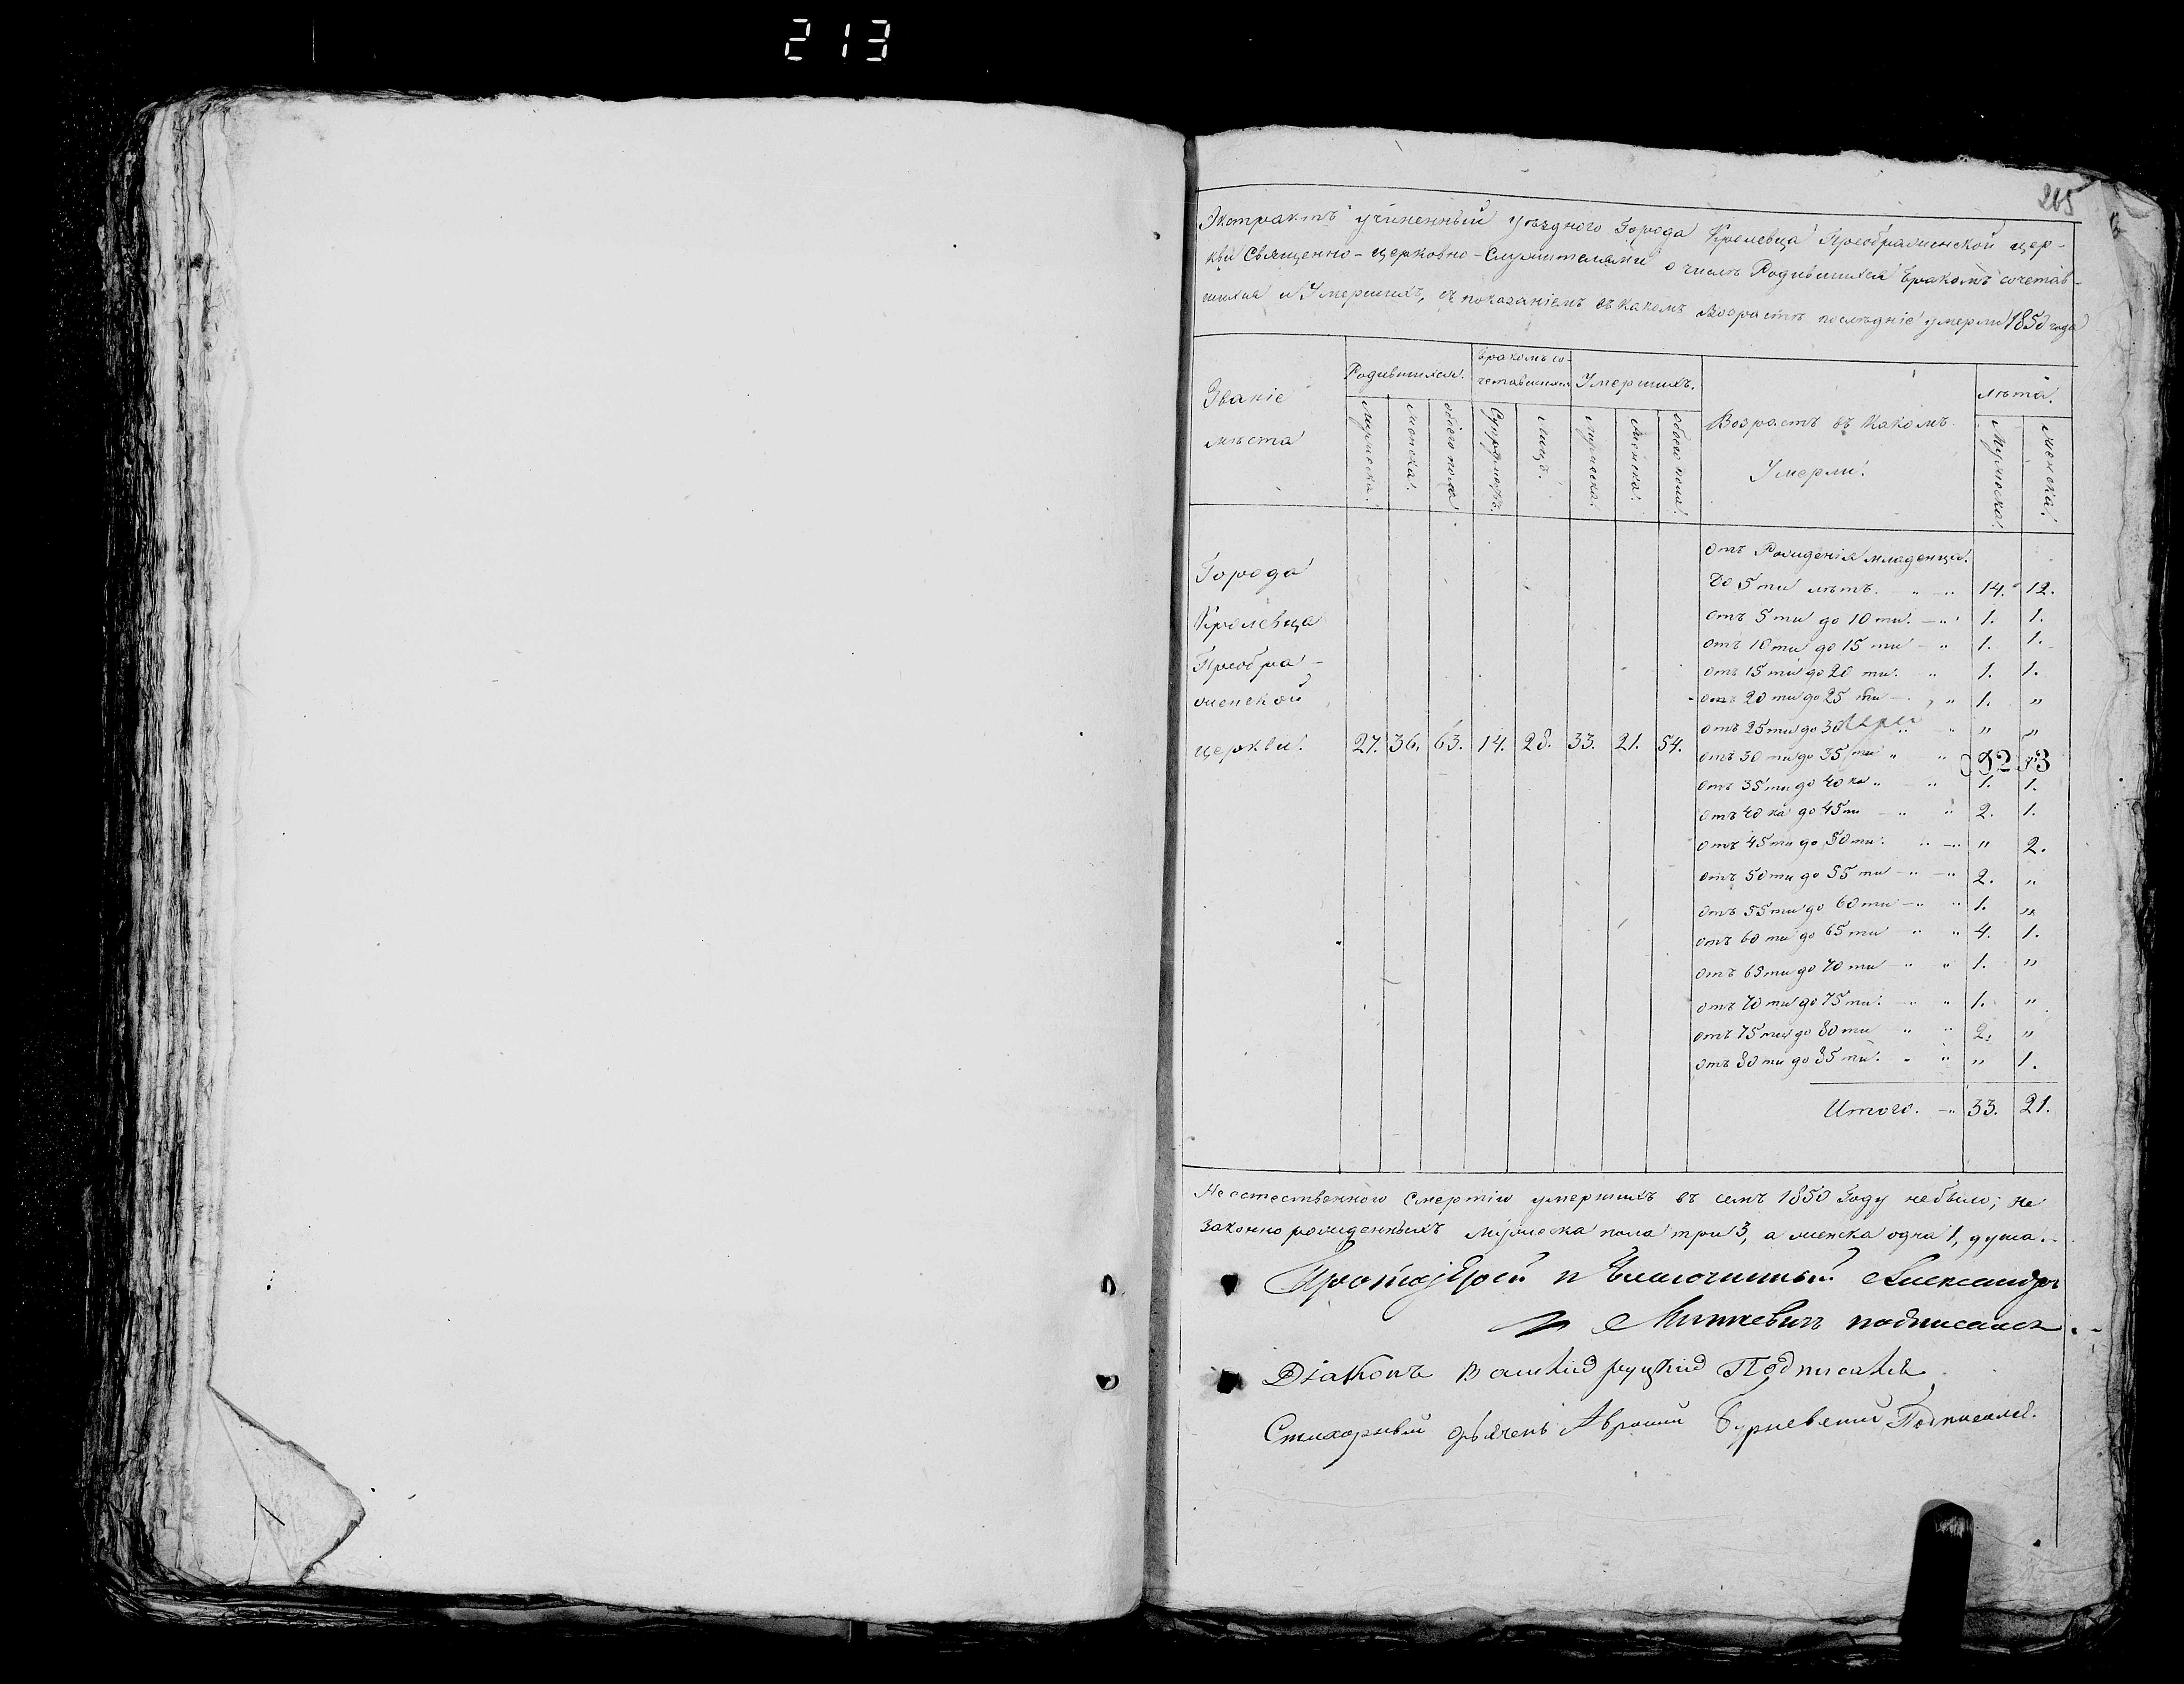 213
265
Экстрактъ учиненный уѣзднаго Города Кролевца Преображенской цер-
кви Священно-церковно-Служителями о числѣ Родившихся бракомъ сочетав-
шихся и Умершихъ, съ показаніемъ въ какомъ Возрастѣ послѣдніе умерли 1850 года
Званіе
мѣста
Родившихся.
бракомъ со-
четавшихся
Умершихъ.
Возрастъ въ Какомъ
Умерли.
лѣта.
Мужеска.
женска.
обоего пола
Супружествъ.
Лицъ.
мужеска.
женска.
обоего пола.
Мужеска.
женска.
Города
Кролевца
Преобра-
женской
церкви. 27. 36. 63. 14. 28. 33. 21. 54.
отъ Рожденія младенца.
до 5ти лѣтъ. 14. 12.
отъ 5ти до 10ти. 1. 1.
отъ 10ти до 15ти 1. 1.
отъ 15ти до 20ти. 1. 1.
отъ 20ти до 25ти 1. "
отъ 25ти до 30 " "
отъ 30ти до 35ти "
отъ 35ти до 40ка 1. 1.
отъ 40ка до 45ти 2. 1.
отъ 45ти до 50ти. " 2.
отъ 50ти до 55ти 2. "
отъ 55ти до 60ти 1. "
отъ 60ти до 65ти 4. 1.
отъ 65ти до 70ти 1. "
отъ 70ти до 75ти. 1. "
отъ 75ти до 80ти 2. "
отъ 80ти до 85ти. " 1.
Итого. 33. 21.
Неестественною Смертію умершихъ въ семъ 1850 Году небыло; не
законно рожденныхъ мужеска пола три 3, а женска одна 1, душа.
Протоіерей и Благочинный Александръ
Миткевичъ подписался.
Діаконъ Подписался
Стихарный дьячекъ Подписался.